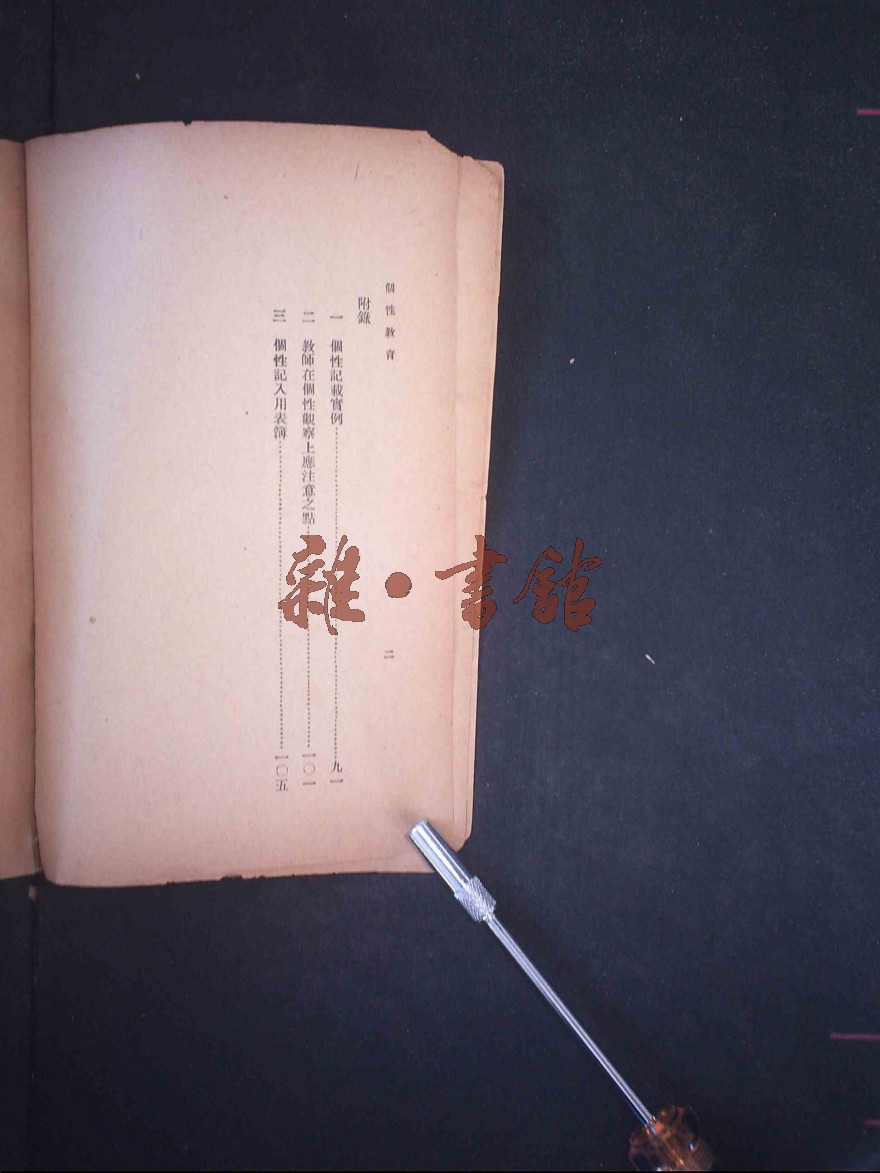 個性教育
二
附錄
一　個性記載實例……九一
二　教師在個性觀察上應注意之點……一〇一
三　個性記入用表簿……一〇五
雜·書館